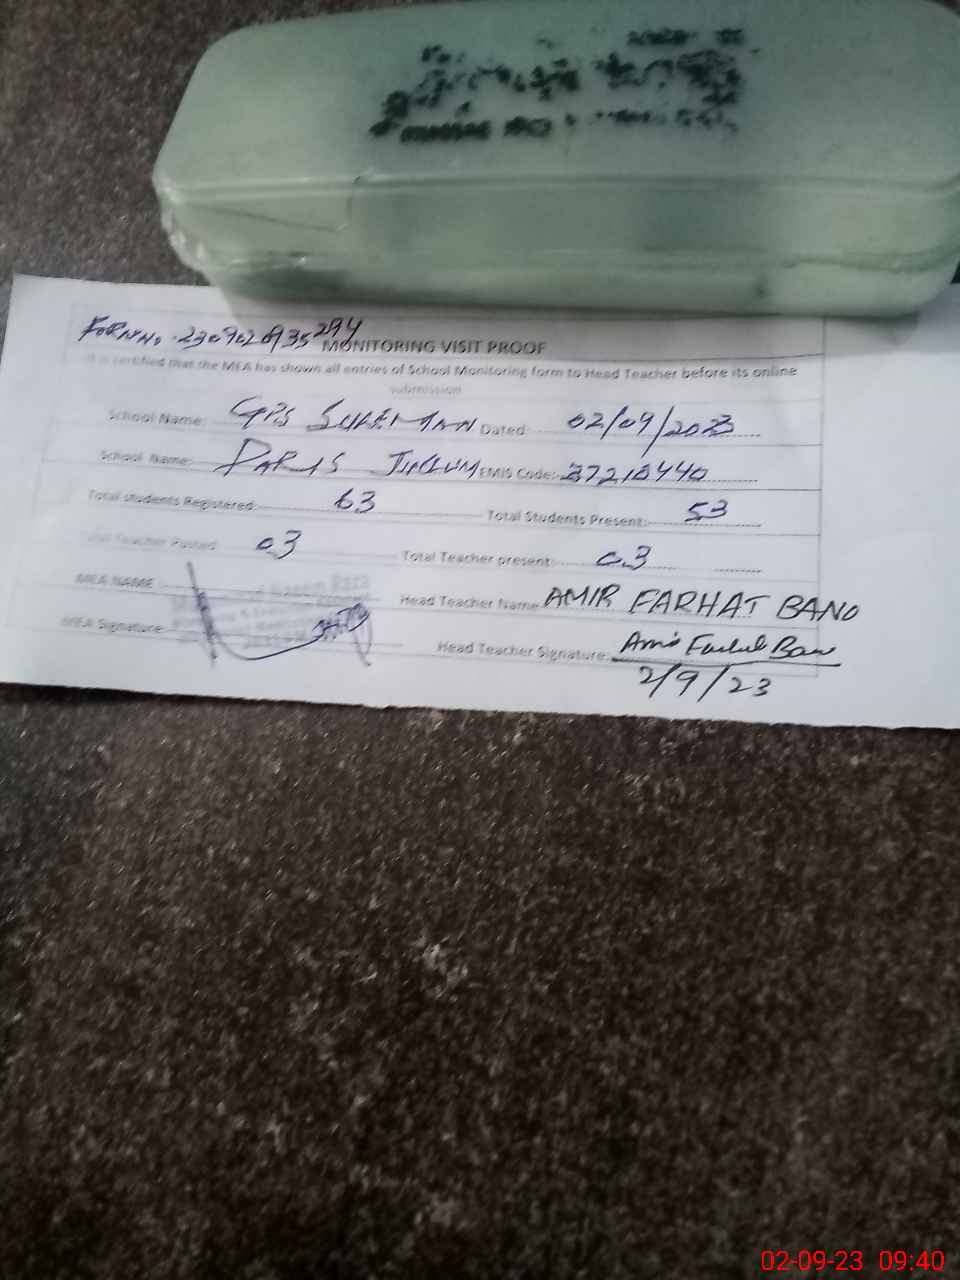 FORM No. 2309020935294
MONITORING VISIT PROOF
It is certified that the MEA has shown all entries of School Monitoring form to Head Teacher before its online
submission
School Name: GPS SULEMAN Dated: 02/09/2023
School Name: PARIS JHELUM EMIS Code: 37210440
Total students Registered: 63 Total Students Present: 53
Total Teacher Posted: 03 Total Teacher present: 03
MEA NAME Head Teacher Name AMIR FARHAT BANO
MEA Signature Head Teacher Signature: Amir Farhat Bano
2/9/23
02-09-23 09:40